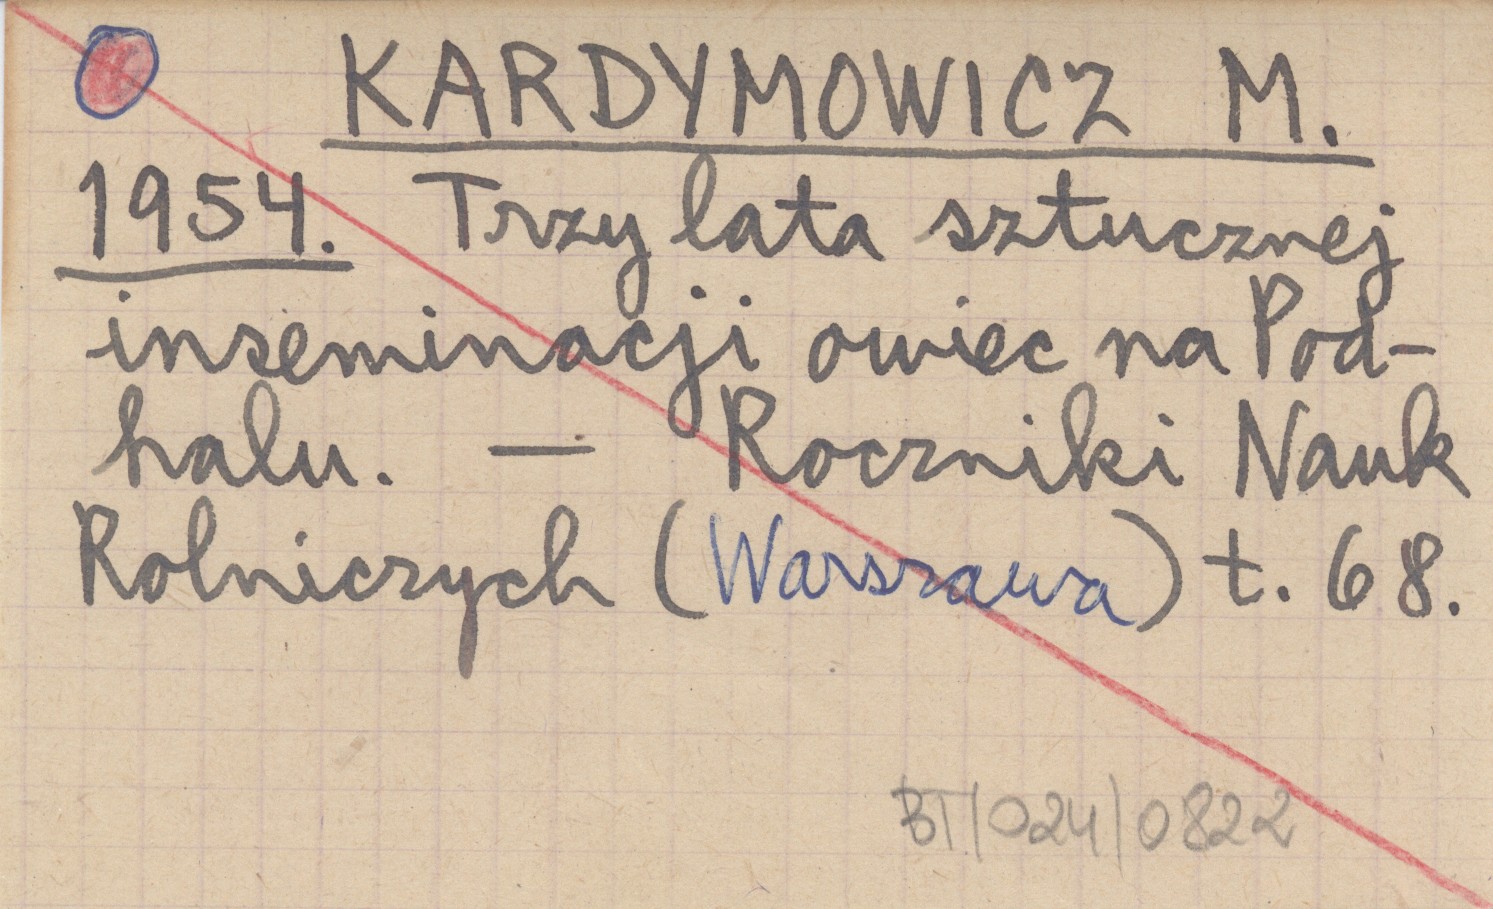 KARDYMOWICZ M.
1954. Trzy lata sztucznej
inseminacji owiec na Pod-
halu. — Roczniki Nauk
Rolniczych (Warszawa) t. 68.
BT/024/0822